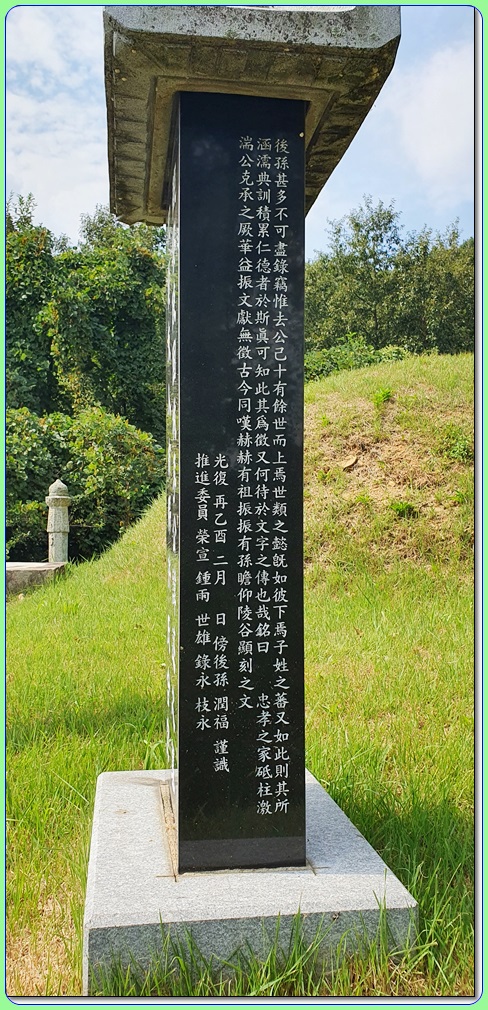 後孫甚多不可盡錄竊惟去公己十有餘世而上焉世類之懿旣如彼下焉子姓之蕃又如此則其所
涵濡典訓積累仁德者於斯眞可知此其爲徵又何待於文字之傳也哉銘曰 忠孝之家砥柱激
湍公克承之厥華益振文獻無徵古今同嘆赫赫有祖振振有孫瞻仰陵谷顯刻之文
光復 再乙酉 二月 日 傍後孫 潤福 謹識
推進委員 榮宣 鍾雨 世雄 錄永 枝永